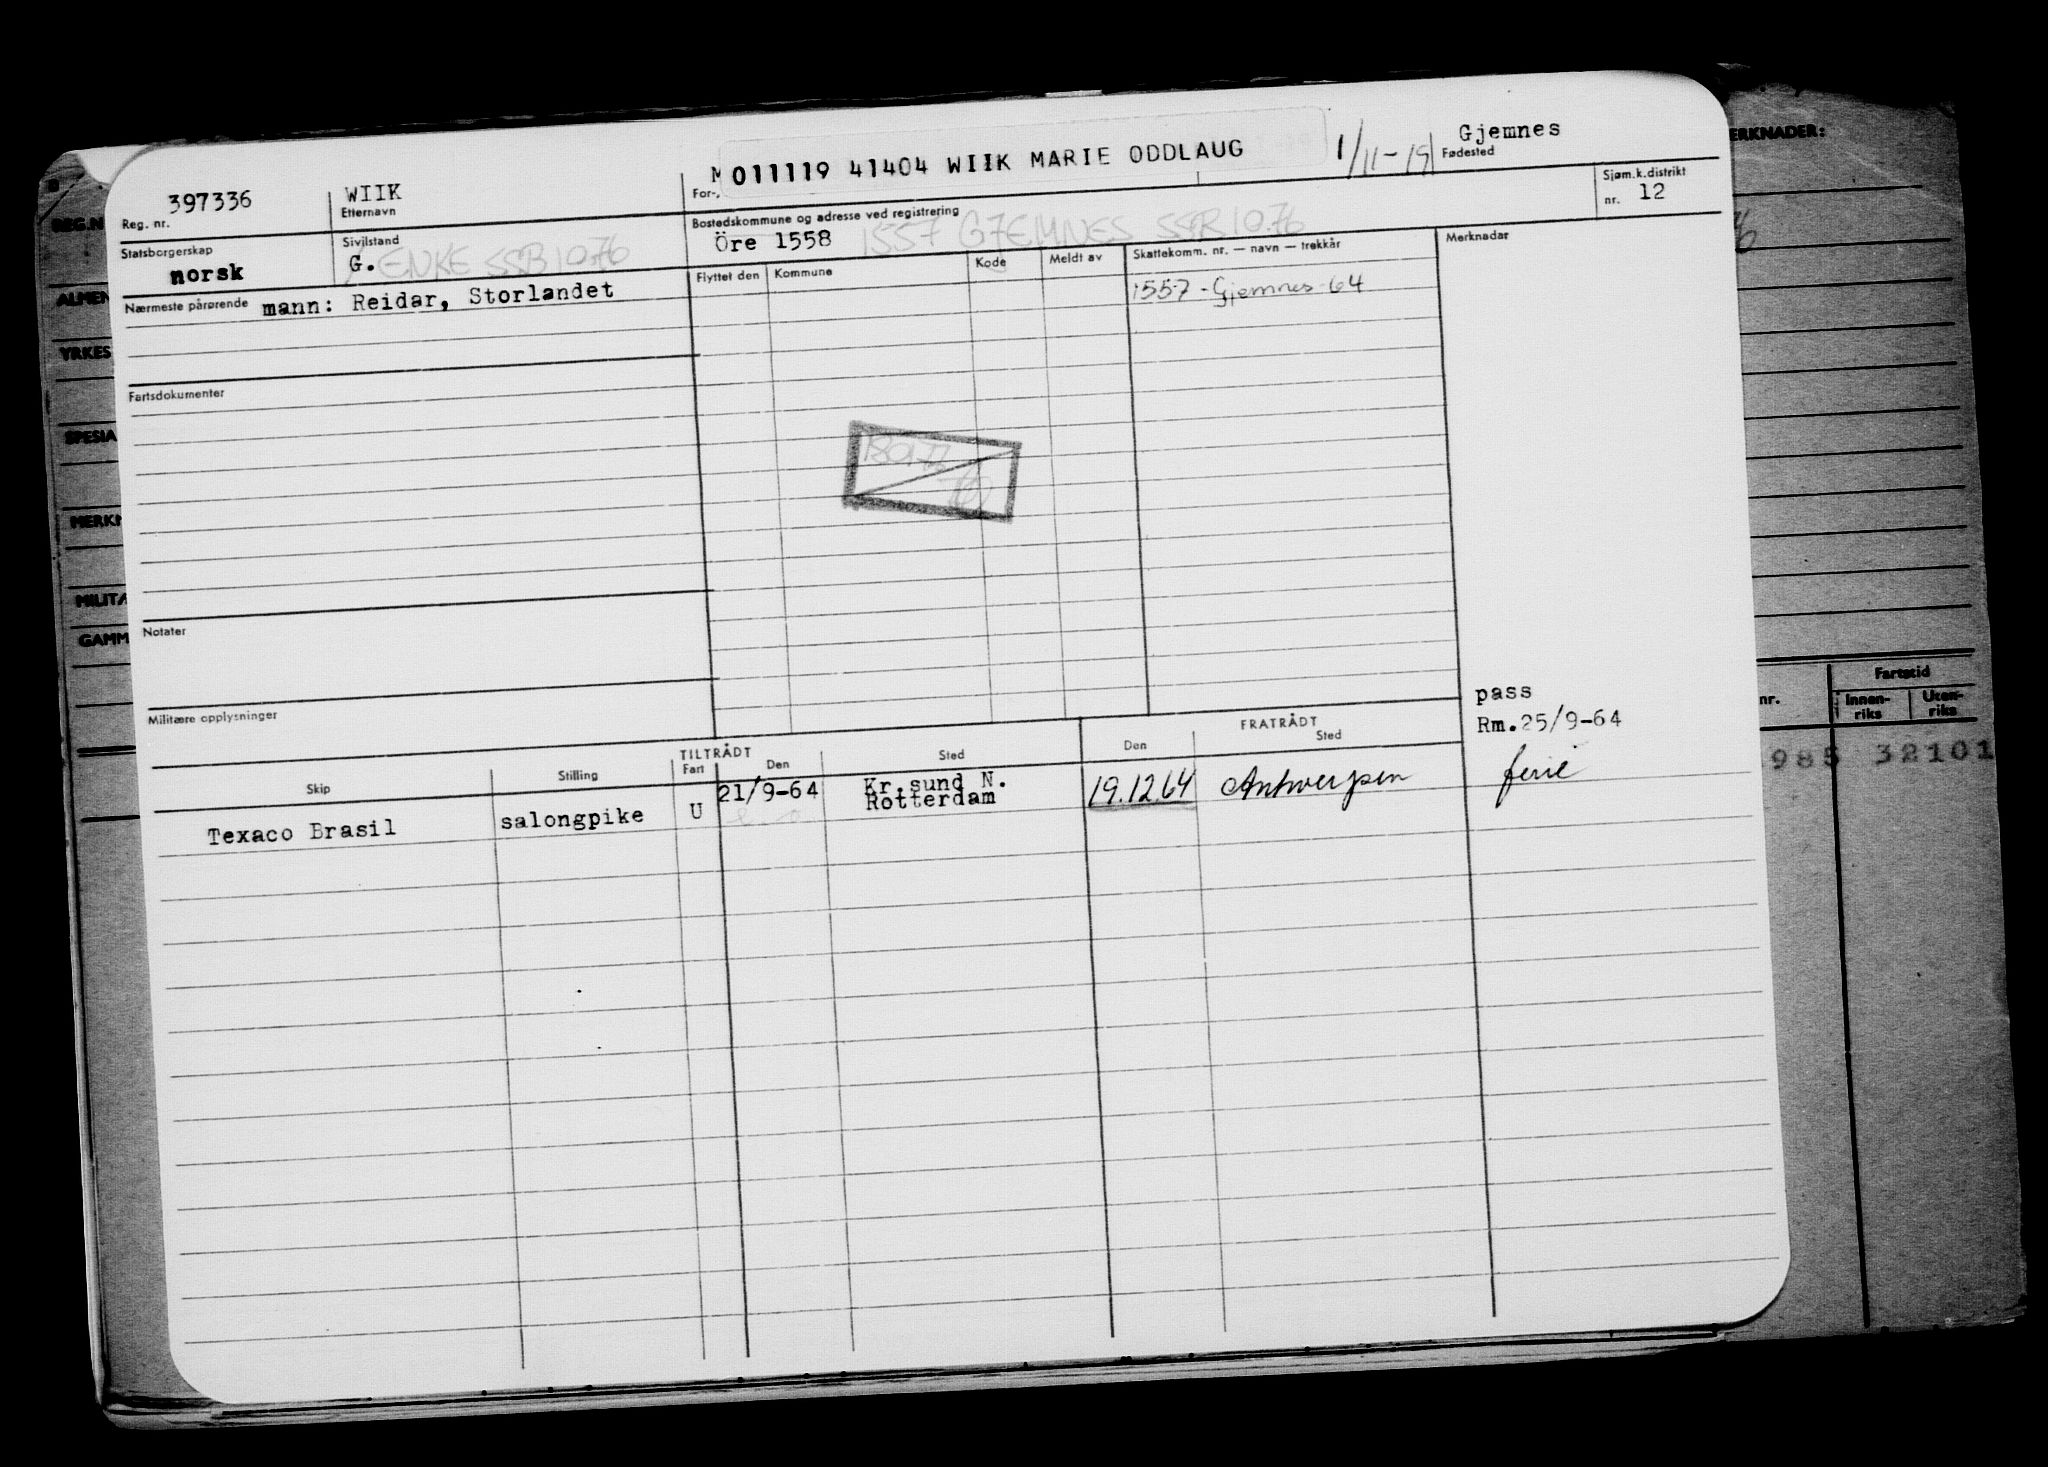 397336
Reg. nr.
WIIK
Etternavn
M
For-,
011119 41404 WIIK MARIE ODDLAUG
1/11-19
Gjemnes
Fødested
Statsborgerskap
norsk
Sivilstand
G. ENKE SSB 10.76
Bostedskommune og adresse ved registrering
Öre 1558 1557 GJEMNES SSB 10.76
Sjøm.k.distrikt
nr. 12
Nærmeste pårørende mann: Reidar, Storlandet
Flyttet den Kommune Kode Meldt av Skattekomm. nr. — navn — trekkår Merknader
1557 - Gjemnes 64
Fartsdokumenter
Notater
Militære opplysninger
pass
Rm.25/9-64
TILTRÅDT FRATRÅDT
Skip Stilling Fart Den Sted Den Sted
Texaco Brasil salongpike U 21/9-64 Kr.sund N. 19.12.64 Antwerpen ferie
Rotterdam
REG.N
ALMEN
YRKES
SPESIA
MERKN
MILITÆ
GAMM
ERKNADER:
nr.
Fartstid
Innen-
riks
Uten-
riks
985 32101